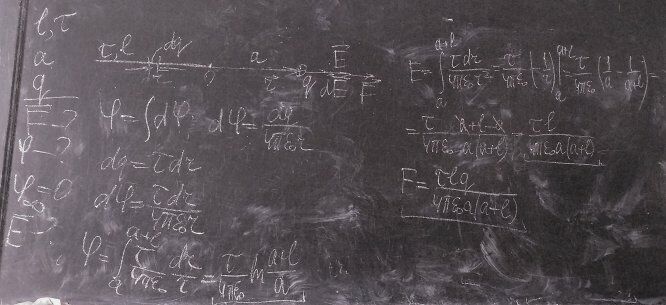 l, τ
a
q
E⃗ ?
φ ?
φ∞ = 0
F⃗ ?
τ, l dq a E⃗
r q dE⃗ F⃗
φ = ∫dφ dφ = dq/4πε₀r
dq = τdr
dφ = τdr/4πε₀r
φ = ∫ₐᵃ⁺ˡ τ/4πε₀ dr/r = τ/4πε₀ ln (a+l)/a
E = ∫ₐᵃ⁺ˡ τdr/4πε₀r² = τ/4πε₀ (-1/r)|ₐᵃ⁺ˡ = τ/4πε₀ (1/a - 1/(a+l)) =
= τ/4πε₀ (a+l-a)/a(a+l) = τl/4πε₀a(a+l)
F = τlq/4πε₀a(a+l)